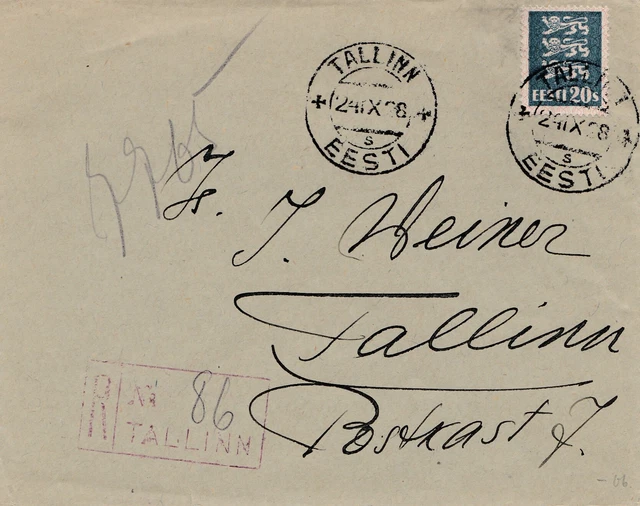 TALLINN
24 IX 28
S
EESTI
EESTI 20s
TALLINN
24 IX 28
S
EESTI
J. Weiner
Tallinn
Postkast 7.
R
№ 86
TALLINN